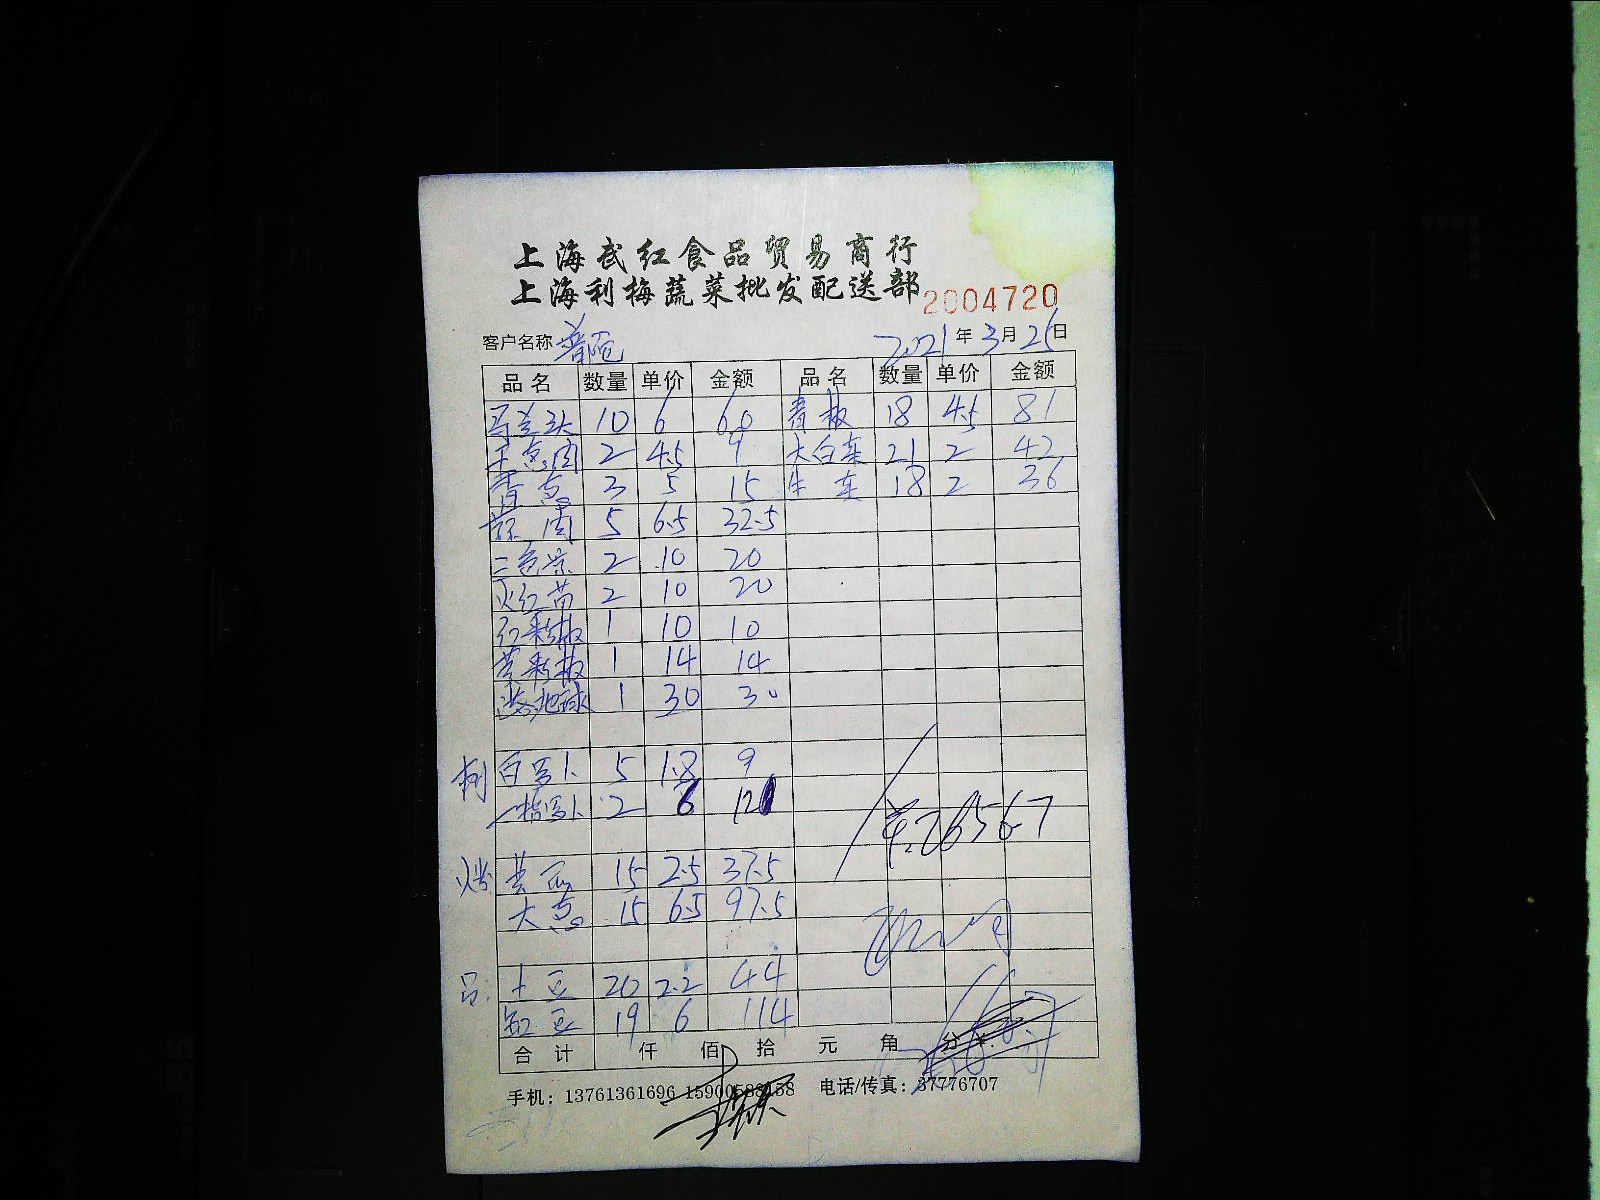 上海武红食品贸易商行
上海利梅蔬菜批发配送部 2004720
客户名称 2021年3月25日
品名 数量 单价 金额 品名 数量 单价 金额
马兰头 10 6 60 青椒 18 4.5 81
2 4.5 9 大白菜 21 2 42
青 3 5 15 生菜 18 2 36
蒜肉 5 6.5 32.5
三色堇 2 10 20
火红苗 2 10 20
红彩椒 1 10 10
黄彩椒 1 14 14
1 30 30
白罗卜 5 1.8 9
一指罗卜 2 6 12
黄瓜 15 2.5 37.5
大 15 6.5 97.5
土豆 20 2.2 44
豆 19 6 114
合计 仟 佰 拾 元 角 分
手机：13761361696 15900588158 电话/传真：37776707